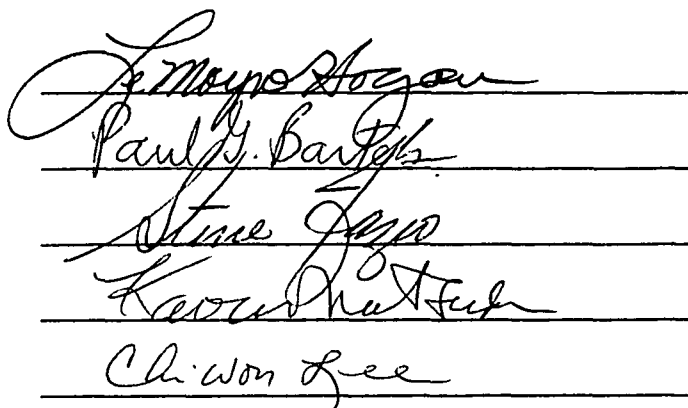 LeMoyne Hogan
Paul G. Bartels
Steve Fazio
Kaoru Matsuda
Chiwon Lee